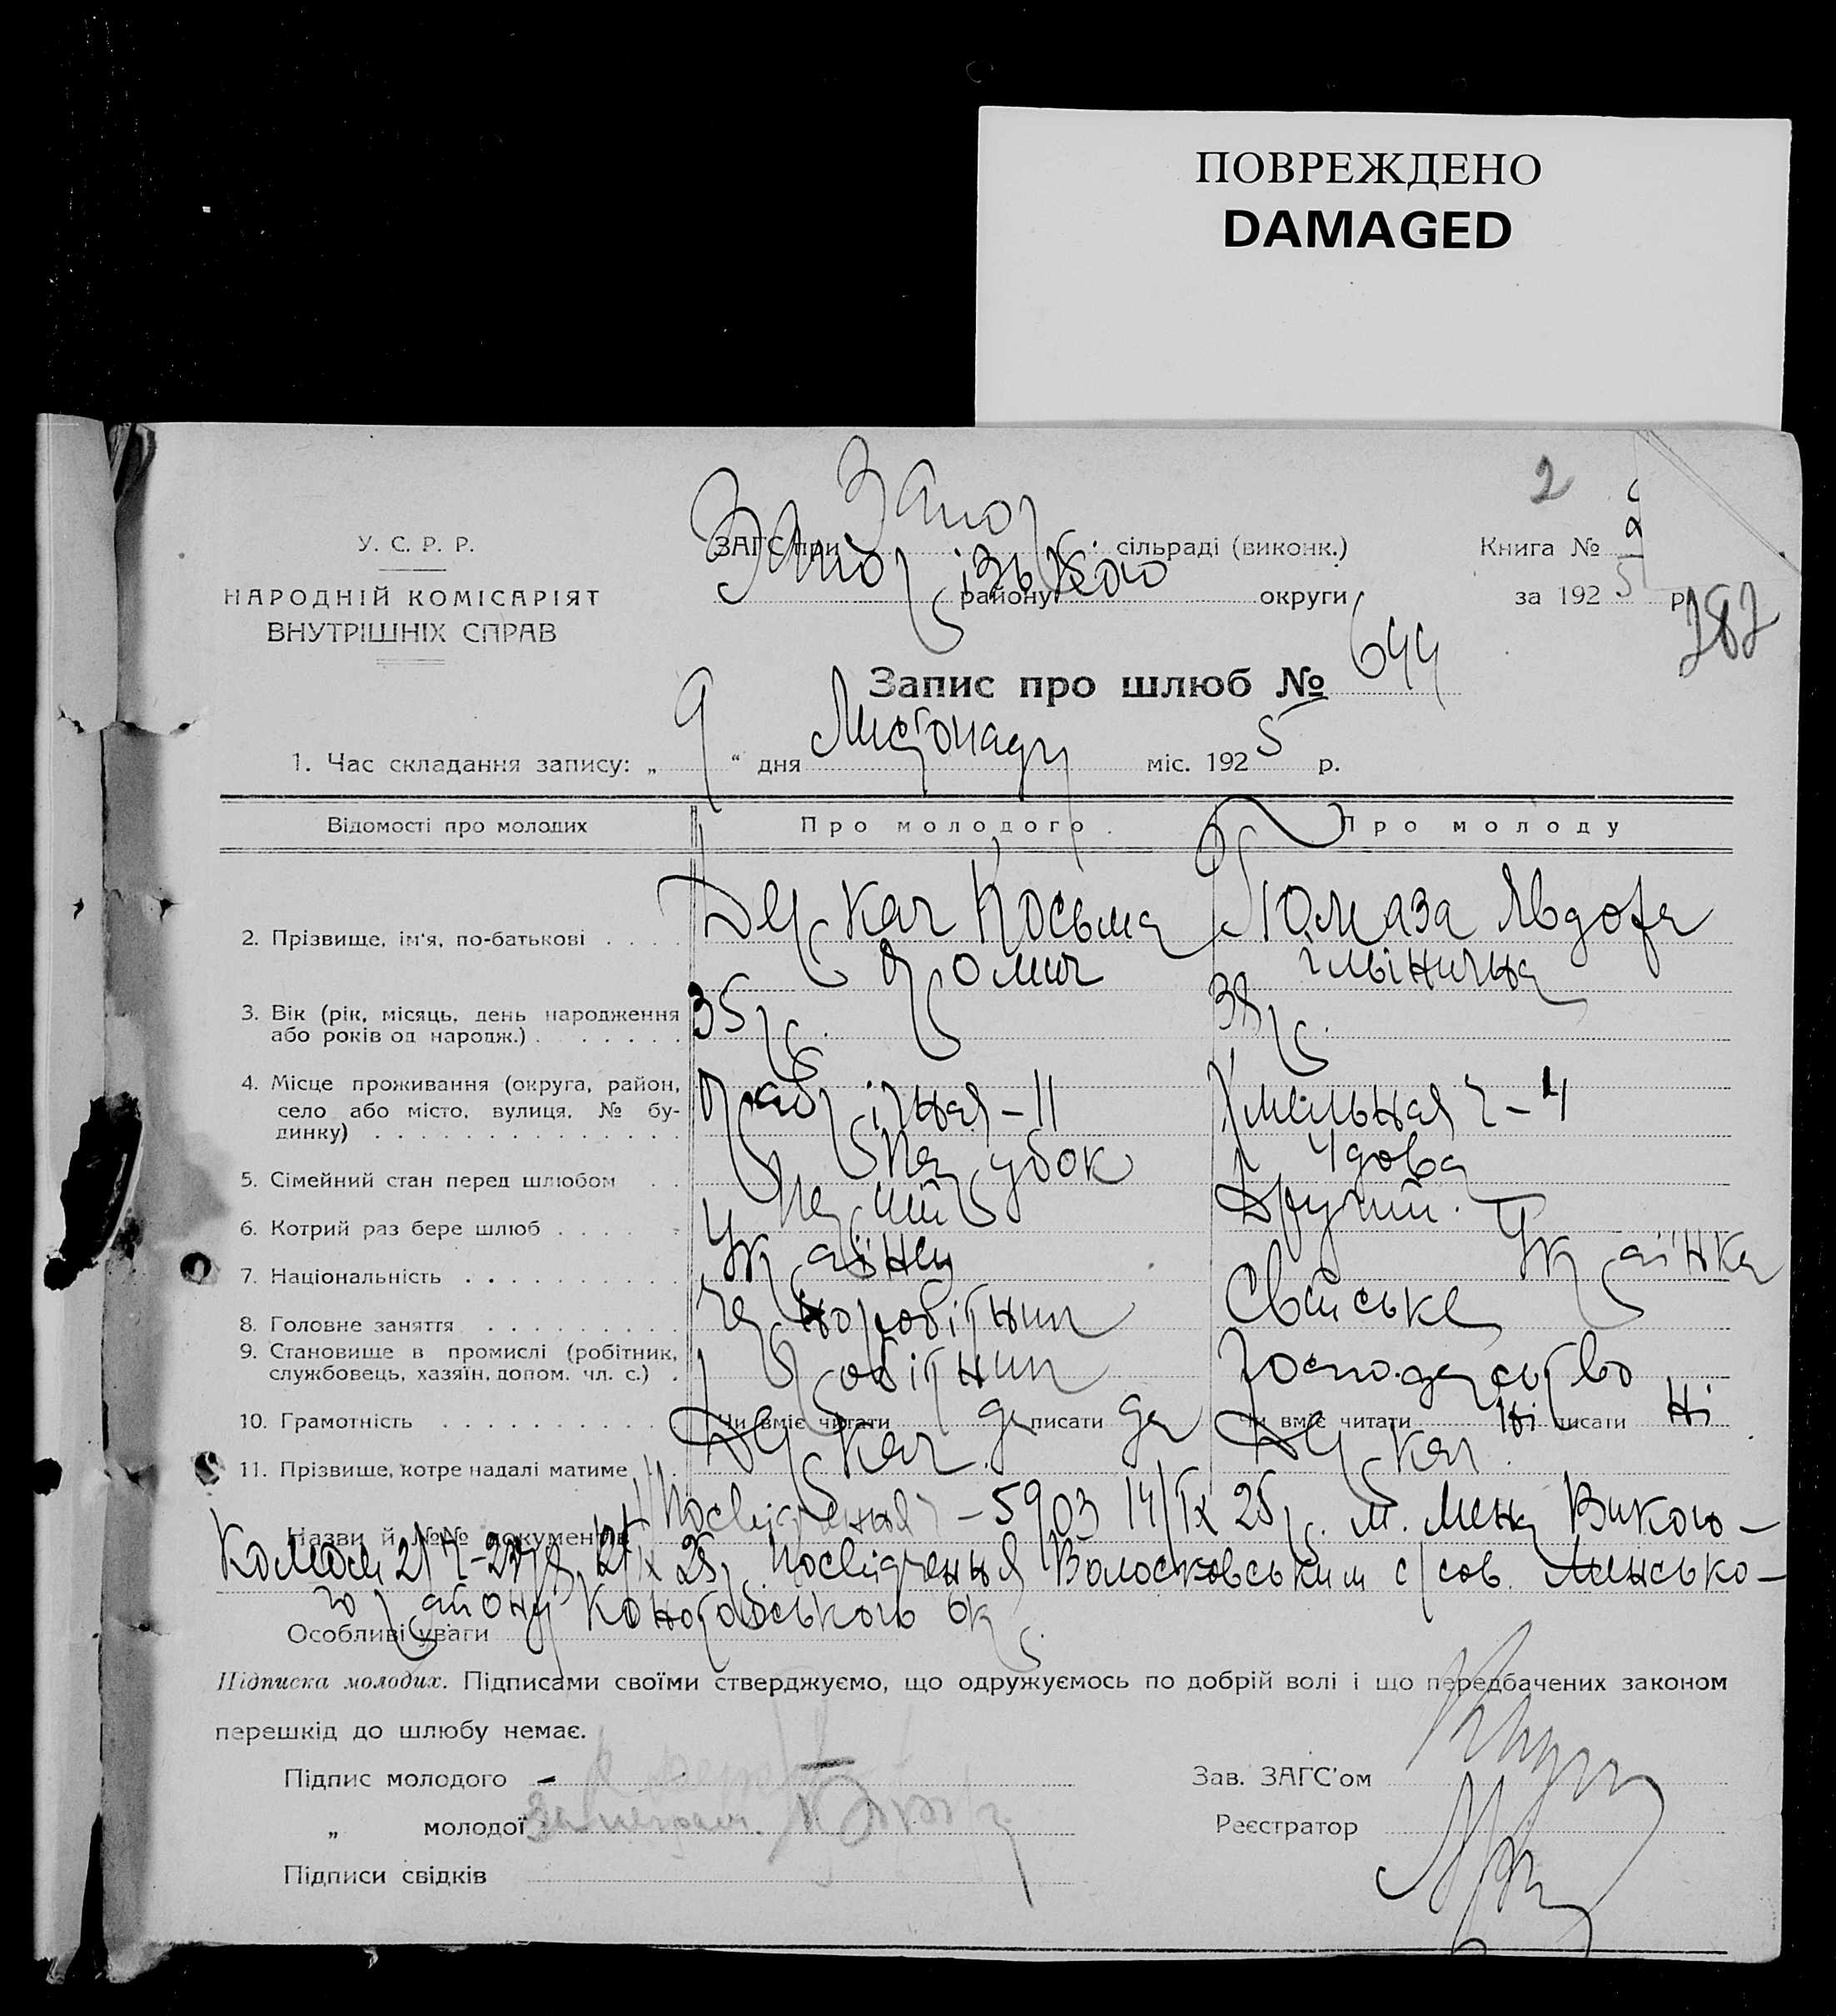 ПОВРЕЖДЕНО
DAMAGED
2
У. С. Р. Р.
НАРОДНІЙ КОМІСАРІЯТ
ВНУТРІШНІХ СПРАВ
ЗАГС при Запор. сільраді (виконк.)
Запорізького району округи
Книга №
за 1925 р.
282
Запис про шлюб № 644
1. Час складання запису: „ 9 “ дня Листопада міс. 1925 р.
Відомості про молодих Про молодого. Про молоду
2. Прізвище, ім'я, по-батькові . . . . Деркач Косьма Гюмаза Явдоха
Ільінична
3. Вік (рік, місяць, день народження 35 р. 38 р.
або років од народж.) . . . . . .
4. Місце проживання (округа, район,
село або місто, вулиця, № бу- – 11 – 4
динку) . . . . . . . . . . . . . . .
5. Сімейний стан перед шлюбом . . Парубок Удова
6. Котрий раз бере шлюб . . . . . . Перший Другий.
7. Національність . . . . . . . . . . Українец Українка
8. Головне заняття . . . . . . . . . Чорноробітник Свійське
9. Становище в промислі (робітник, Робітник Господарство
службовець, хазяїн, допом. чл. с.) .
10. Грамотність . . . . . . . . . . Чи вміє читати да писати да Чи вміє читати ні писати ні
11. Прізвище, котре надалі матиме . . Деркач Деркач.
Назви й №№ документів Посвідчення – 5903 14/IX 25 р. м. Мена Виконо–
Комом 25 р. Посвідчення Волосковським с/сов. Менсько–
го району Конотопського окр.
Особливі уваги
Підписка молодих. Підписами своїми стверджуємо, що одружуємось по добрій волі і що передбачених законом
перешкід до шлюбу немає.
Підпис молодого
„ молодої За неграм.
Підписи свідків
Зав. ЗАГС'ом
Реєстратор